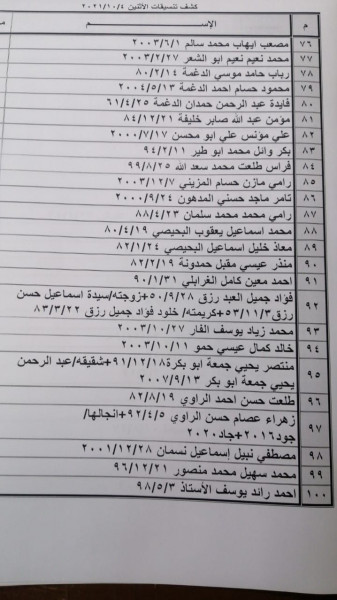 كشف تنسيقات الأثنين ٢٠٢١/١٠/٤
م الإســـــم
٧٦ مصعب ايهاب محمد سالم ٢٠٠٣/٦/١
٧٧ محمد نعيم نعيم ابو الشعر ٢٠٠٣/٢/٢٧
٧٨ رباب حامد موسي الدغمة ٨٠/٢/١٤
٧٩ محمود حسام احمد الدغمة ٢٠٠٤/٥/١٣
٨٠ فايدة عبد الرحمن حمدان الدغمة ٦١/٤/٢٥
٨١ مؤمن عبد الله صابر خليفة ٨٤/١٢/٢١
٨٢ علي مؤنس علي ابو محسن ٢٠٠٠/٧/١٧
٨٣ بكر وائل محمد ابو طير ٩٤/٢/١١
٨٤ فراس طلعت محمد سعد الله ٩٩/٨/٢٥
٨٥ رامي مازن حسام المزيني ٢٠٠٣/١٢/٧
٨٦ تامر ماجد حسني المدهون ٢٠٠٠/٩/٢٤
٨٧ رامي محمد محمد سلمان ٨٨/٤/٢٣
٨٨ محمد اسماعيل يعقوب البحيصي ٨٠/٤/١٩
٨٩ معاذ خليل اسماعيل البحيصي ٨٢/١/٢٤
٩٠ منذر عيسي مقبل حمدونة ٨٢/٢/١٩
٩١ احمد معين كامل الغرابلي ٩٠/١/٣١
٩٢ فؤاد جميل العبد رزق ٥٠/٩/٢٨+زوجته/سيدة اسماعيل حسن
رزق٥٣/١١/٣+كريمته/ خلود فؤاد جميل رزق ٨٣/٣/٢٢
٩٣ محمد زياد يوسف الفار ٢٠٠٣/١٠/٢٧
٩٤ خالد كمال عيسي حمو ٢٠٠٣/١٠/١١
٩٥ منتصر يحيي جمعة ابو بكرة٩١/١٢/١٨+شقيقه/عبد الرحمن
يحيي جمعة ابو بكر ٢٠٠٧/٩/١٣
٩٦ طلعت حسن احمد الراوي ٨٢/٨/١٩
٩٧ زهراء عصام حسن الراوي ٩٢/٤/٥+انجالها/
جود٢٠١٦+جاد٢٠٢٠
٩٨ مصطفي نبيل إسماعيل نسمان ٢٠٠١/١٢/٢٨
٩٩ محمد سهيل محمد منصور ٩٦/١٢/٢١
١٠٠ احمد رائد يوسف الأستاذ ٩٨/٥/٣